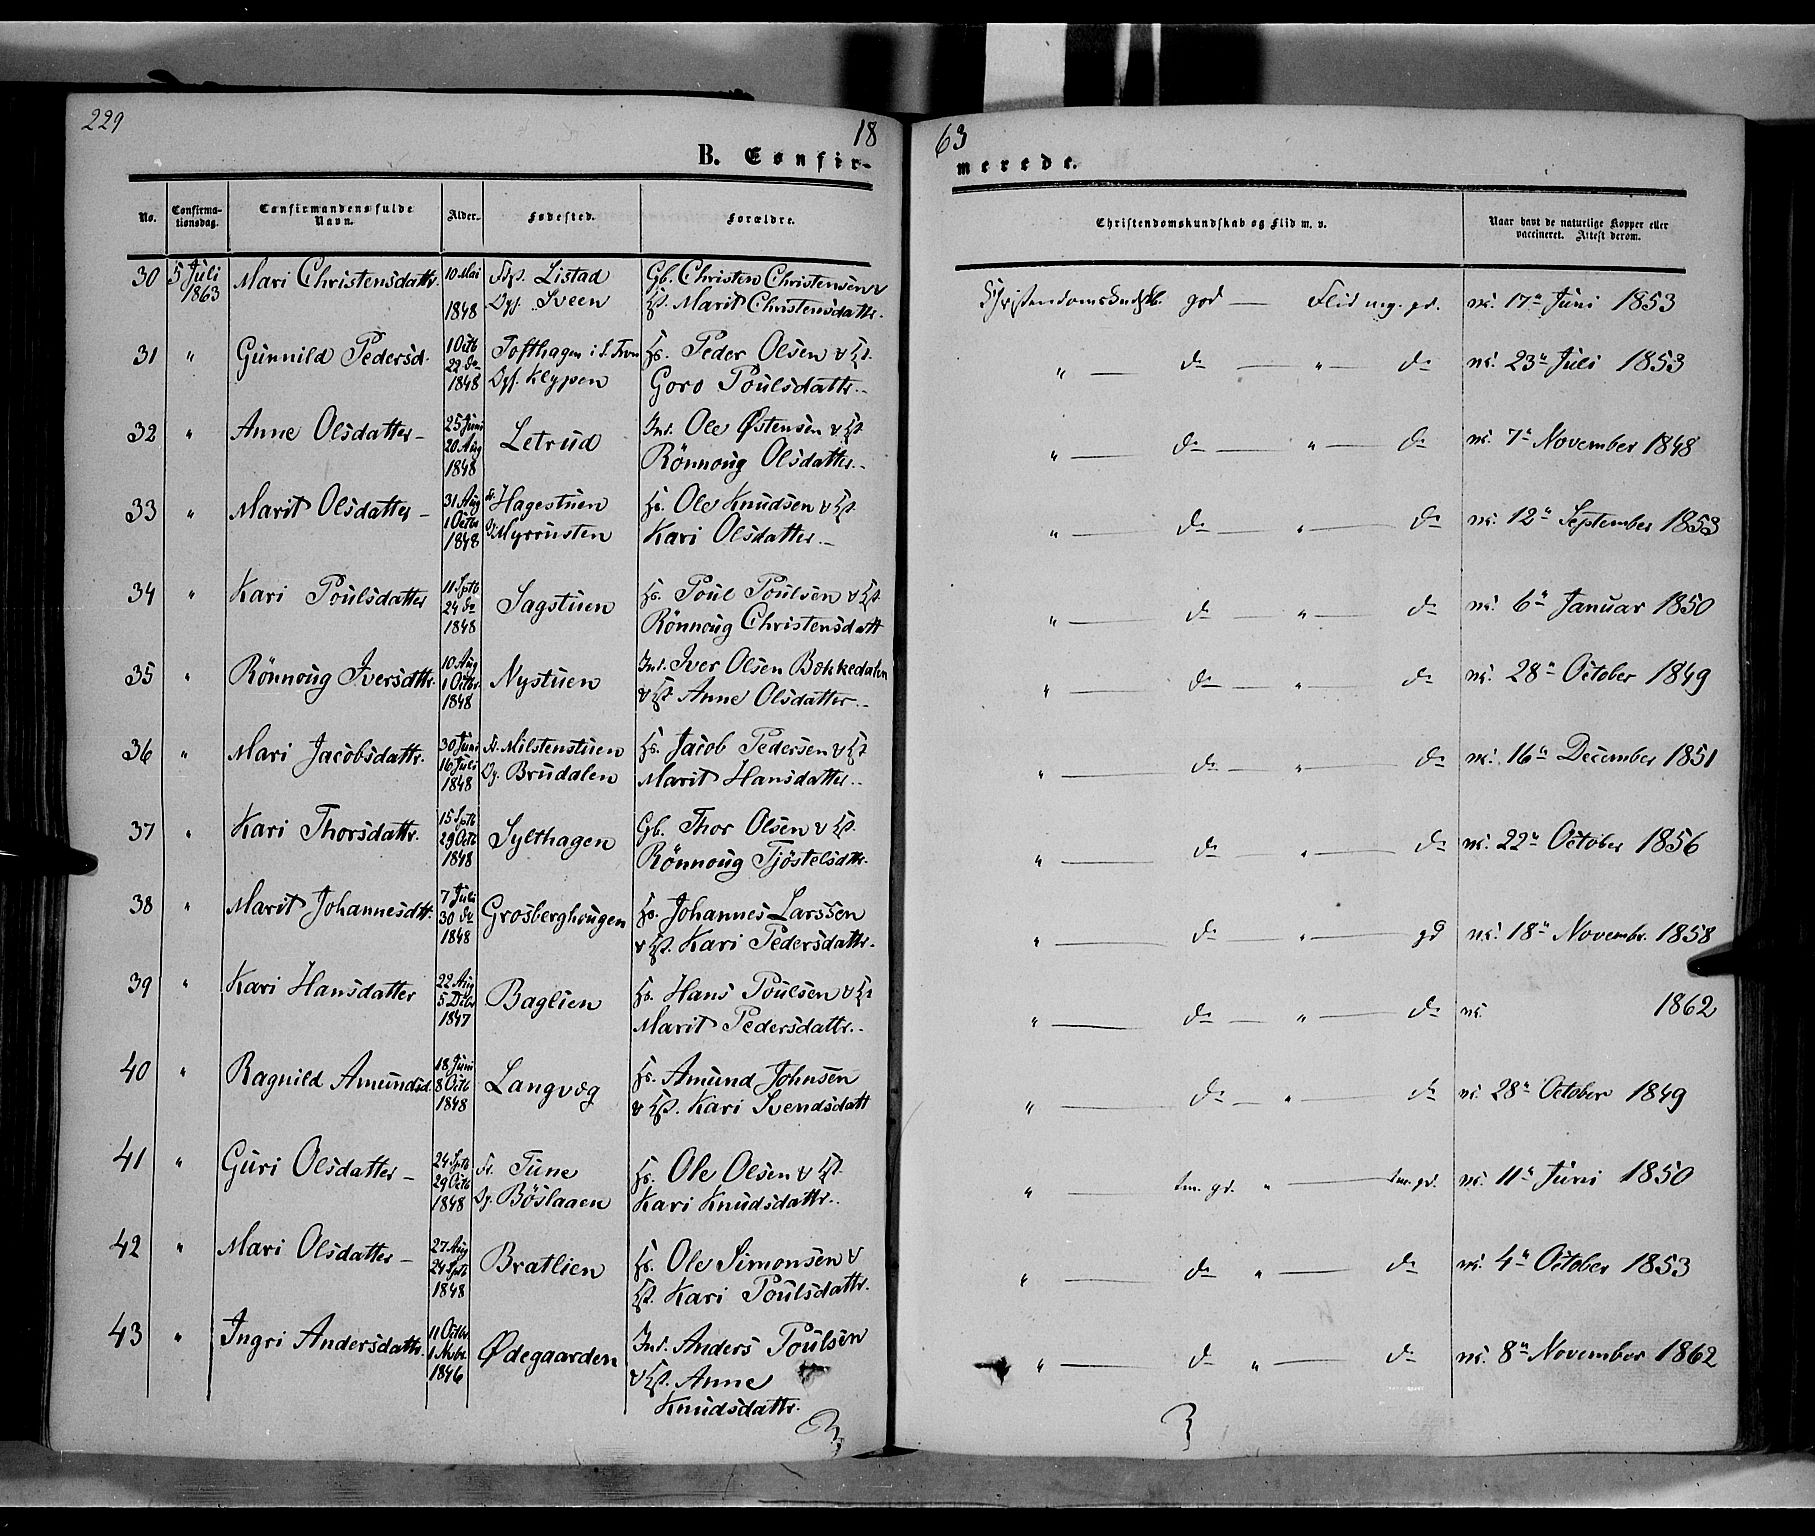 229
18
63
B. Confir-
merede.
No.
Confirma-
tionsdag.
Confirmandens fulde
Navn.
Alder.
Fødested.
Forældre.
Christendomskundskab og Flid m. v.
Naar havt de naturlige Kopper eller
vaccineret. Attest derom.
30 5 Juli 1863 Mari Christensdattr. 10 Mai 1848 Listad Sveen Gb. Christen Christensen & Marit Christensdattr. god — Flid mg. gd. 17de Juni 1853
31 " Gunnild Pedersd. 1 Octb 22 do 1848 Tofthagen i S. Fron Klyppen Peder Olsen & Goro Poulsdattr. " — do — " — do 23de Juli 1853
32 " Anne Olsdatter 25 Juni 20 Aug 1848 Letrud Ind. Ole Østensen & Rönnoug Olsdatter. " — do — " — do 7de November 1848
33 " Marit Olsdatter 31 Aug 1 Octb 1848 Hagestuen Myrrusten Ole Knudsen & Kari Olsdatter. " — do — " — do 12te September 1853
34 " Kari Poulsdatter 11 Sptb 24 do 1848 Sagstuen Poul Poulsen & Rönnoug Christensdatt " — do — " — do 6te Januar 1850
35 " Rönnoug Iversdttr. 10 Aug 1 Octbr 1848 Nystuen Ind. Iver Olsen Bakkedalen & Anne Olsdatter. " — do — " — do 28de October 1849
36 " Mari Jacobsdattr. 30 Juni 16 Juli 1848 Milstenstuen Brudalen Jacob Pedersen & Marit Hansdatter. " — do — " — do 16de December 1851
37 " Kari Thorsdattr. 15 Sptb 29 Octb 1848 Sylthagen Gb. Thor Olsen & Rönnoug Tjöstelsdttr. " — do — " — do 22de October 1856
38 " Marit Johannesdtt. 7 Juli 30 do 1848 Grosberghougen Johannes Larssen & Kari Pedersdattr. " — do — " — gd 18de Novembr. 1858
39 " Kari Hansdatter 22 Aug 5 Dcbr 1847 Baglien Hans Poulsen & Marit Pedersdattr. " — do — " — do 1862
40 " Ragnild Amundsd. 18 Juni 8 Octb 1848 Langvæg Amund Johnsen & Kari Svendsdatt " — do — " — do 28de October 1849
41 " Guri Olsdatter 24 Sptb 29 Octb 1848 Tune Böslaaen Ole Olsen & Kari Knudsdattr. " — tm. gd. " — tm. gd. 11te Juni 1850
42 " Mari Olsdatter 27 Aug 24 Sptb 1848 Bratlien Ole Simonsen & Kari Poulsdattr. " — do " — do 4de October 1853
43 " Ingri Andersdattr. 11 Octbr 1 Nvbr 1846 Ødegaarden Ind. Anders Poulsen & Anne Knudsdattr. " — do " — do 8de November 1862